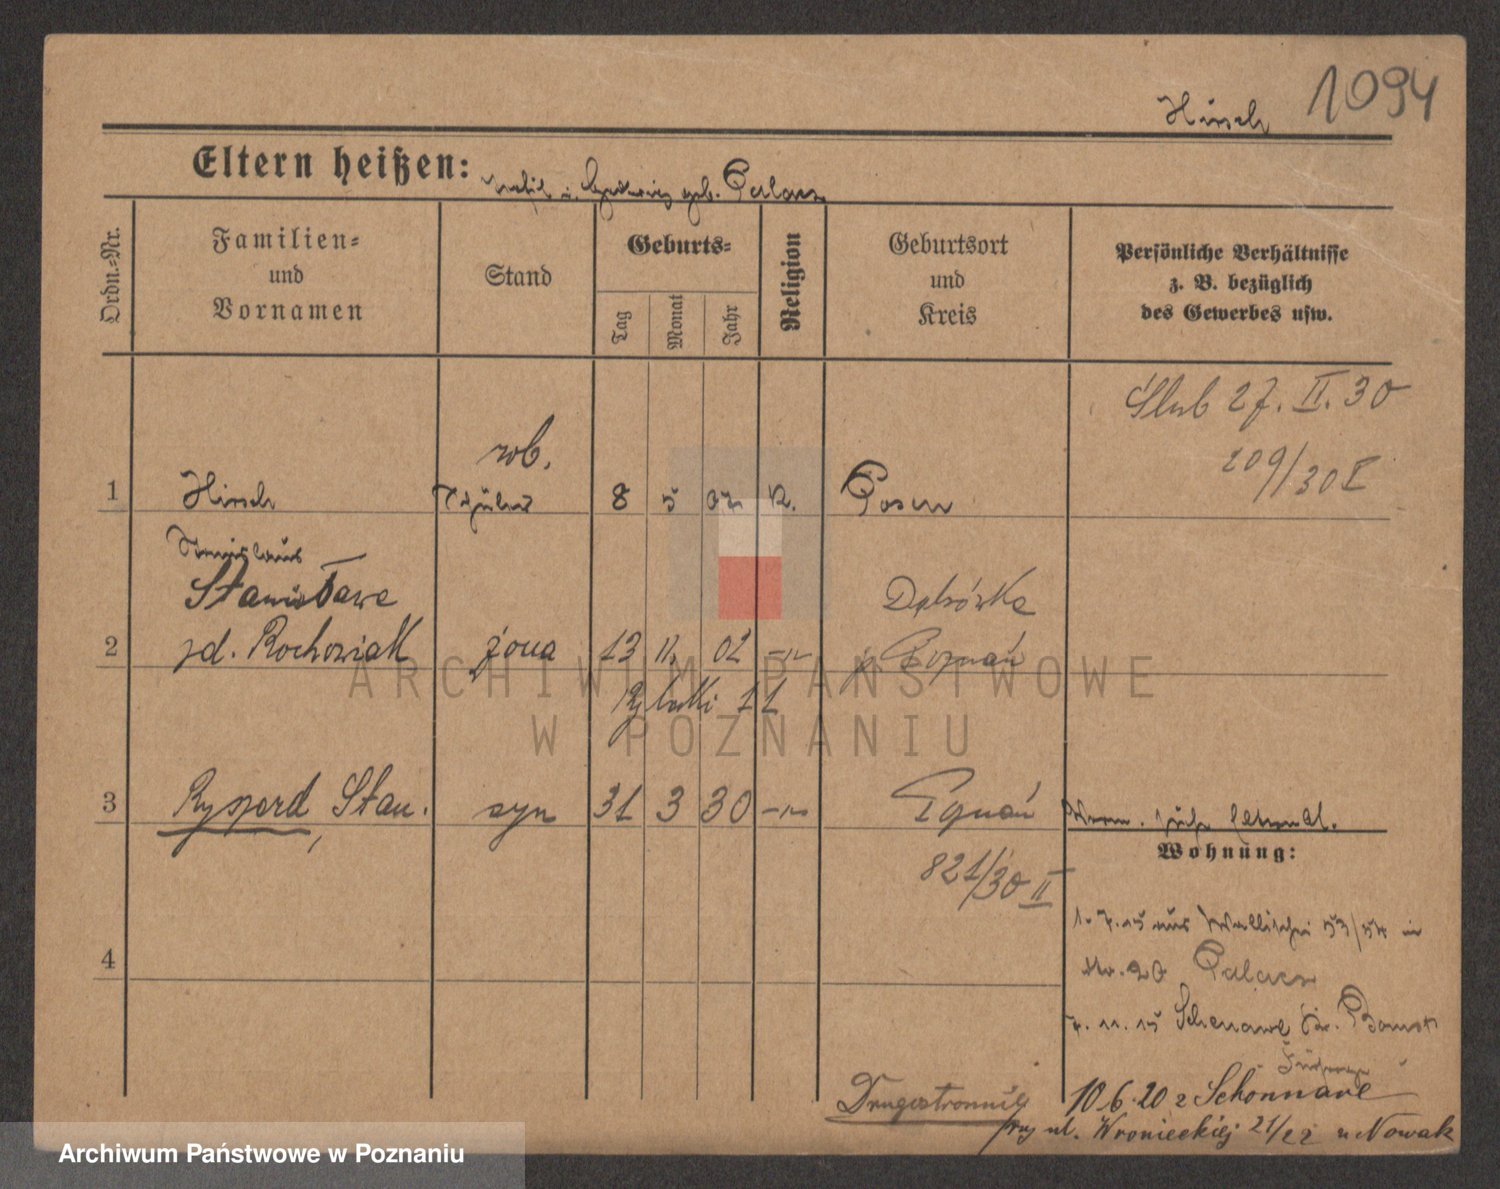 1094
Hirsch
Eltern heißen:
geb. Palacz
Ordn.-Nr.
Familien-
und
Vornamen
Stand
Geburts-
Tag
Monat
Jahr
Religion
Geburtsort
und
Kreis
Persönliche Verhältnisse
z. B. bezüglich
des Gewerbes usw.
Ślub 27. II. 30
209/30 I
rob.
1 Hirsch Schüler 8 5 02 K. Posen
Stanislaus
Stanisława Dąbrówka
2 zd. Rochowiak żona 13 11 02 -"- p. Poznań
Rybaki 11
3 Ryszard, Stan. syn 31 3 30 -"- Poznań
821/30 II
Wohnung:
1.7.15 aus Wallischei 53/54 in
Nr. 20 Palacz
7.11.15 Schenawe Kr. Bomst
4
10.6.20 z Schonnawe
Drugostronnie
przy ul. Wronieckiej 21/22 u Nowak
ARCHIWUM PAŃSTWOWE
W POZNANIU
Archiwum Państwowe w Poznaniu